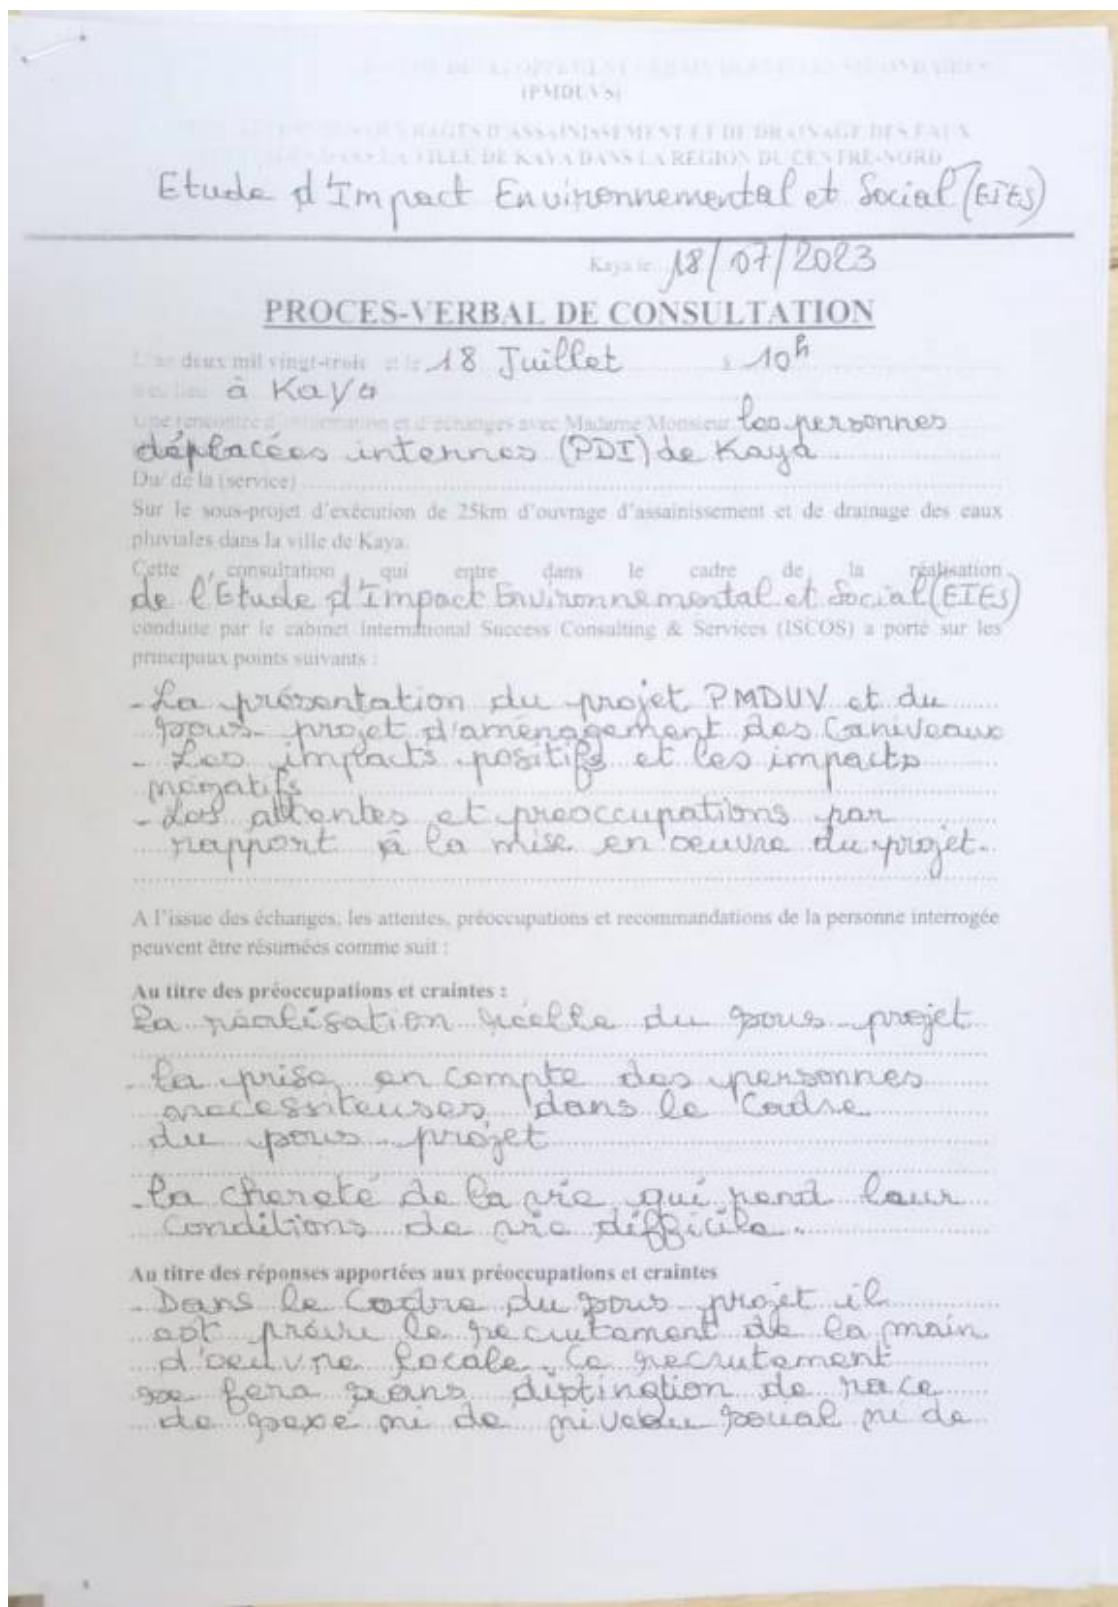 (PMDUVS)
D'ASSAINISSEMENT ET DE DRAINAGE DES EAUX
DANS LA VILLE DE KAYA DANS LA REGION DU CENTRE-NORD
Etude d'Impact Environnemental et Social (EIES)
Kaya le 18/07/2023
PROCES-VERBAL DE CONSULTATION
L'an deux mil vingt-trois et le 18 Juillet à 10h
à Kaya
Une rencontre d'information et d'échanges avec Madame Monsieur les personnes
déplacées internes (PDI) de Kaya
Du/ de la (service)
Sur le sous-projet d'exécution de 25km d'ouvrage d'assainissement et de drainage des eaux
pluviales dans la ville de Kaya.
Cette consultation qui entre dans le cadre de la réalisation
de l'Etude d'Impact Environnemental et Social (EIES)
conduite par le cabinet International Success Consulting & Services (ISCOS) a porté sur les
principaux points suivants :
- La présentation du projet PMDUV et du
sous-projet d'aménagement des Caniveaux
- Les impacts positifs et les impacts
négatifs
- Les attentes et preoccupations par
rapport à la mise en oeuvre du projet.
A l'issue des échanges, les attentes, préoccupations et recommandations de la personne interrogée
peuvent être résumées comme suit :
Au titre des préoccupations et craintes :
La réalisation réelle du sous-projet
- la prise en compte des personnes
necessiteuses dans le Cadre
du sous-projet
- la chereté de la vie qui rend leur
Conditions de vie difficile.
Au titre des réponses apportées aux préoccupations et craintes
- Dans le Cadre du sous-projet il
est prévu le recrutement de la main
d'oeuvre locale. Ce recrutement
se fera sans distinction de race
de sexe ni de niveau social ni de